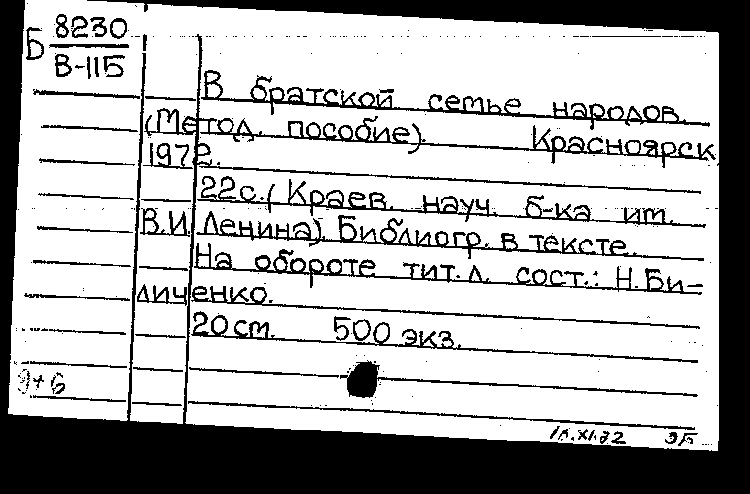 Б 8230
В-11Б
В братской семье народов.
(Метод. пособие). Красноярск
1972.
22с. (Краев. науч. б-ка им.
В.И. Ленина). Библиогр. в тексте.
На обороте тит. л. сост.: Н. Би-
личенко.
20 см. 500 экз.
9+6